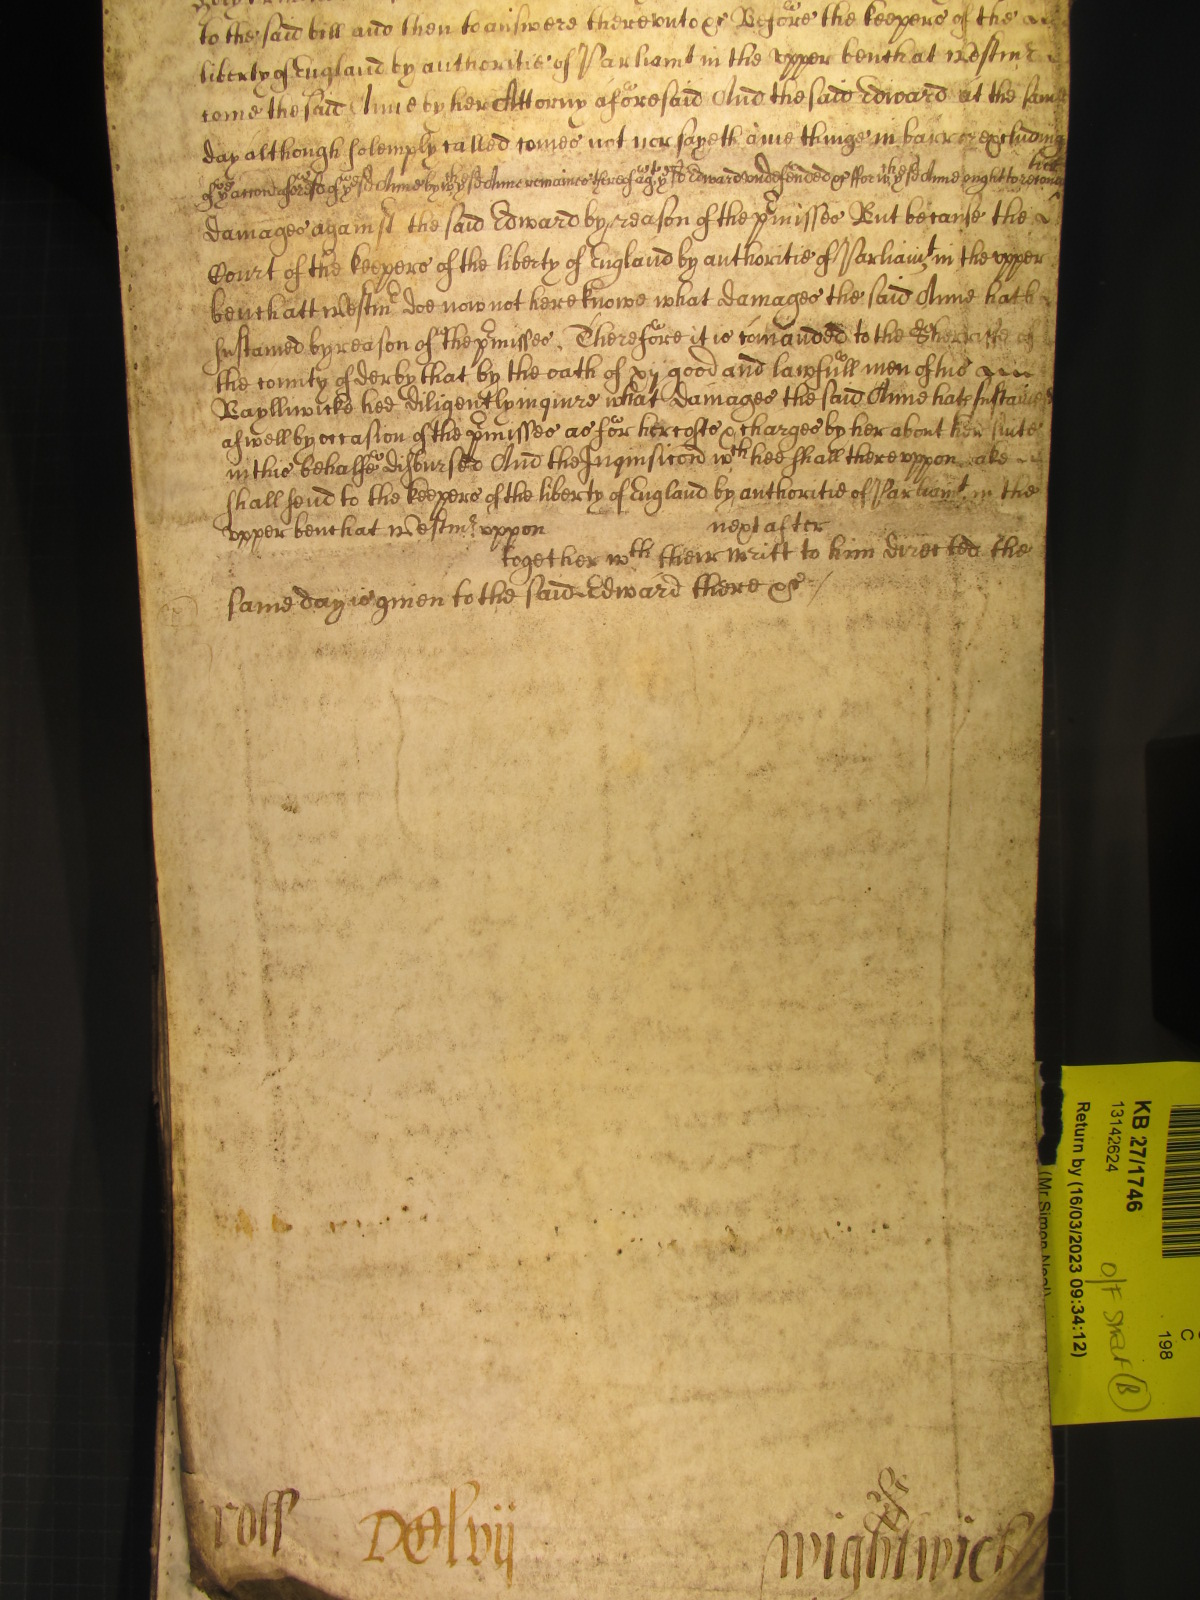 to the said bill and then to answere therevnto &c Before the keepers of the
liberty of England by authoritie of Parliamt in the vpper bench at Westmr
come the said Anne by her Attorny aforesaid And the said Edward at the same
day although solemply called comes not nor sayeth anie thinge in barr or excluding
of ye accon aforesd of ye sd Anne by wch ye sd Anne remaines thereof agt ye sd Edward vndefended &c ffor wch ye sd Anne ought to recover
her
damages against the said Edward by reason of the pmisses But because the
Court of the keepers of the liberty of England by authoritie of Parliamt in the vpper
bench att Westmr doe now not here knowe what damages the said Anne hath
sustained by reason of the pmisses. Therefore it is comanded to the Sherriffe of
the county of derby that by the oath of xij good and lawfull men of his
Baylliwicke hee diligently inquire what damages the said Anne hath sustained
aswell by occasion of the pmisses as for her costs & charges by her about her suite
in this behalfe disbursed And the Inquisicon wch hee shall therevppon take
shall send to the keepers of the liberty of England by authoritie of Parliamt in the
vpper bench at Westmr vppon next after
together wth their writt to him directed the
same day is given to the said Edward there &c
roll DClvij Wightwick
KB 27/1746
13142624
Return by (16/03/2023 09:34:12)
(Mr Simon Neal)
C
198
O/F Smart (B)